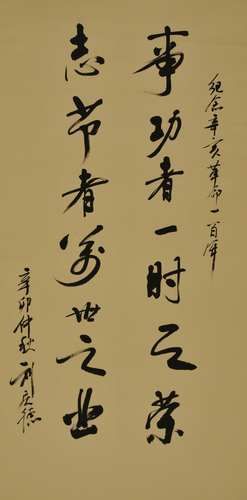 纪念辛亥革命一百年
事功者一时之荣
志节者万世之业
辛卯仲秋 刘友德